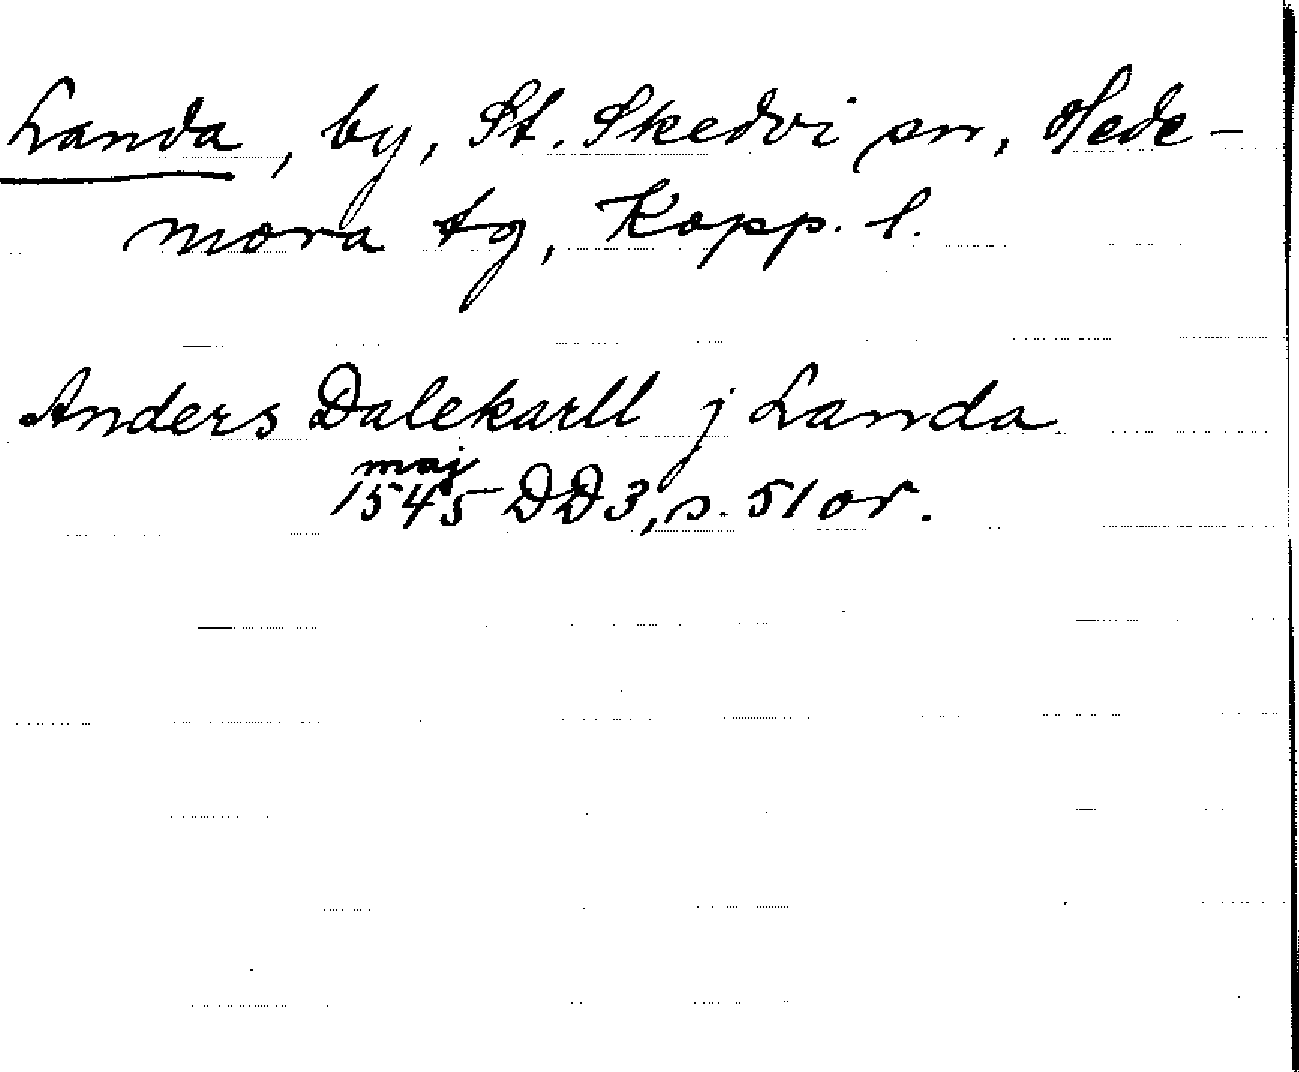 Landa, by, St. Skedvi sn, Hede-
mora tg, Kopp. l.
Anders Dalekarll j Landa
maj
1545 DD3, s. 51 or.